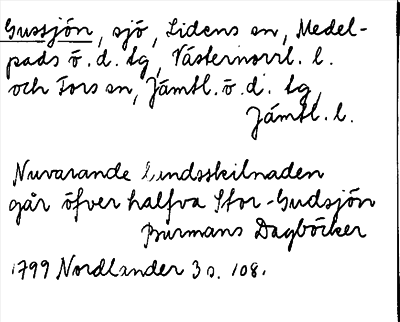 Gussjön, sjö, Lidens sn, Medel-
pads ö. d. tg, Västernorrl. l.
och Fors sn, Jämtl. ö. d. tg,
Jämtl. l.
Nuvarande lindsskilnaden
går öfver halfva Stor-Gudsjön
Burmans Dagböcker
1799 Nordlander 3 s. 108.